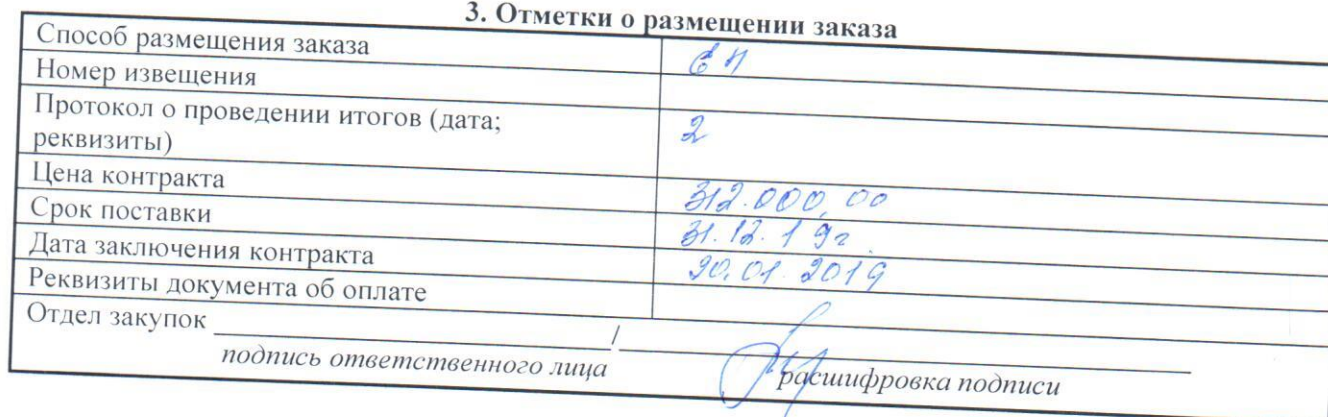 3. Отметки о размещении заказа
Способ размещения заказа ЕП
Номер извещения
Протокол о проведении итогов (дата;
реквизиты) 2
Цена контракта 312.000,00
Срок поставки 31.12.19г.
Дата заключения контракта 30.01.2019
Реквизиты документа об оплате
Отдел закупок ____________________/____________________
подпись ответственного лица расшифровка подписи